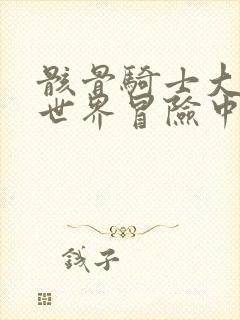 骸骨騎士大
世界冒險中
钱子